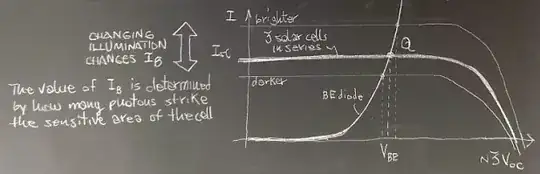 CHANGING
ILLUMINATION
CHANGES IB
The value of IB is determined
by how many photons strike
the sensitive area of the cell
I
brighter
3 solar cells
in series
ISC
Q
darker
BE diode
VBE
~3VOC